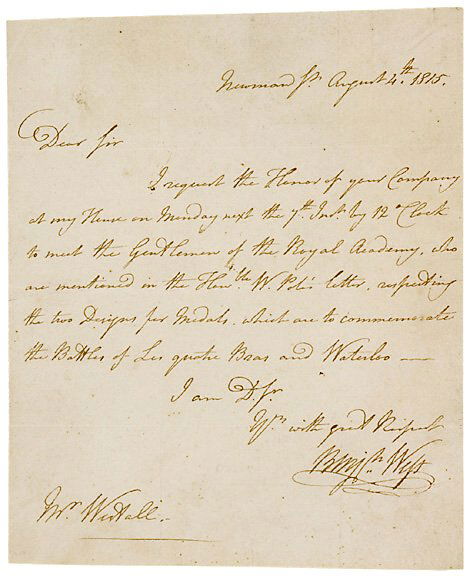 Newman St. August 4th. 1815.
Dear Sir
I request the Honor of your Company
at my House on Monday next the 7th. Inst. by 12 o Clock
to meet the Gentlemen of the Royal Academy, who
are mentioned in the Honble W. Pole's letter, respecting
the two Designs for Medals, which are to commemorate
the Battles of Les quatre Bras and Waterloo —
I am D. Sr.
Yrs. with great Respect
Benjn. West
Mr. Westall.